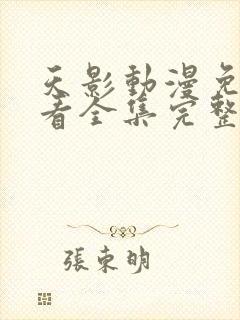 天影動漫免
看全集完整
張東明